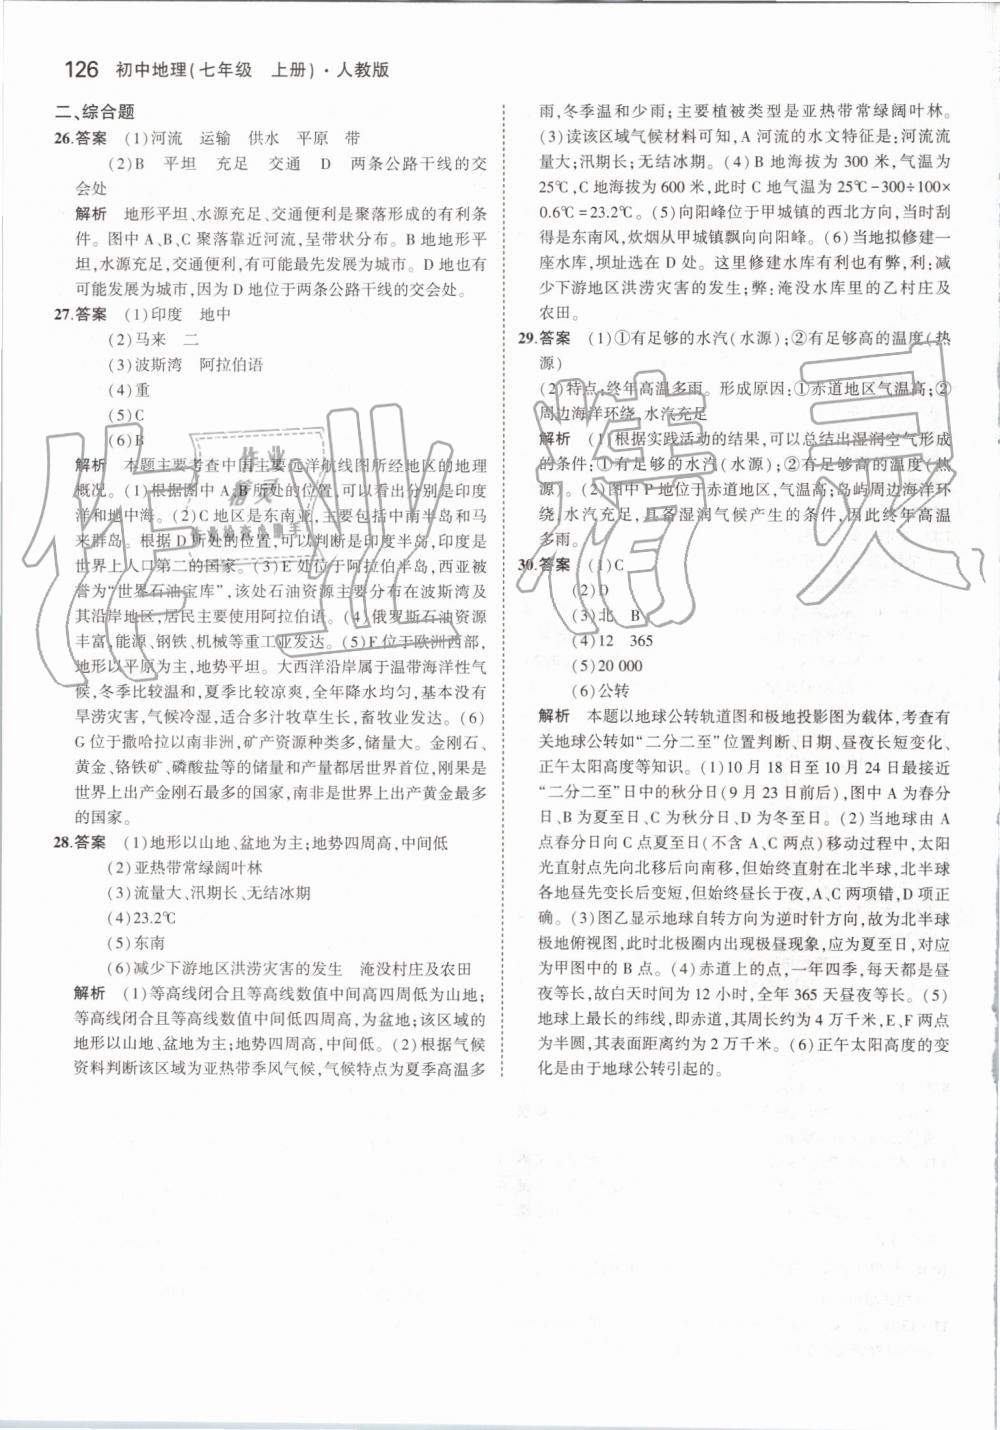 126 初中地理(七年级 上册)·人教版
二、综合题
26.答案 (1)河流 运输 供水 平原 带
(2)B 平坦 充足 交通 D 两条公路干线的交
会处
解析 地形平坦、水源充足、交通便利是聚落形成的有利条
件。图中 A、B、C 聚落靠近河流,呈带状分布。B 地地形平
坦,水源充足,交通便利,有可能最先发展为城市。D 地也有
可能发展为城市,因为 D 地位于两条公路干线的交会处。
27.答案 (1)印度 地中
(2)马来 二
(3)波斯湾 阿拉伯语
(4)重
(5)C
(6)B
解析 本题主要考查中国主要远洋航线图所经地区的地理
概况。(1)根据图中 A、B 所处的位置,可以看出分别是印度
洋和地中海。(2)C 地区是东南亚,主要包括中南半岛和马
来群岛。根据 D 所处的位置,可以判断是印度半岛,印度是
世界上人口第二的国家。(3)E 处位于阿拉伯半岛,西亚被
誉为“世界石油宝库”,该处石油资源主要分布在波斯湾及
其沿岸地区,居民主要使用阿拉伯语。(4)俄罗斯石油资源
丰富,能源、钢铁、机械等重工业发达。(5)F 位于欧洲西部,
地形以平原为主,地势平坦。大西洋沿岸属于温带海洋性气
候,冬季比较温和,夏季比较凉爽,全年降水均匀,基本没有
旱涝灾害,气候冷湿,适合多汁牧草生长,畜牧业发达。(6)
G 位于撒哈拉以南非洲,矿产资源种类多,储量大。金刚石、
黄金、铬铁矿、磷酸盐等的储量和产量都居世界首位,刚果是
世界上出产金刚石最多的国家,南非是世界上出产黄金最多
的国家。
28.答案 (1)地形以山地、盆地为主;地势四周高,中间低
(2)亚热带常绿阔叶林
(3)流量大、汛期长、无结冰期
(4)23.2℃
(5)东南
(6)减少下游地区洪涝灾害的发生 淹没村庄及农田
解析 (1)等高线闭合且等高线数值中间高四周低为山地;
等高线闭合且等高线数值中间低四周高,为盆地;该区域的
地形以山地、盆地为主;地势四周高,中间低。(2)根据气候
资料判断该区域为亚热带季风气候,气候特点为夏季高温多
雨,冬季温和少雨;主要植被类型是亚热带常绿阔叶林。
(3)读该区域气候材料可知,A 河流的水文特征是:河流流
量大;汛期长;无结冰期。(4)B 地海拔为 300 米,气温为
25℃,C 地海拔为 600 米,此时 C 地气温为 25℃-300÷100×
0.6℃=23.2℃。(5)向阳峰位于甲城镇的西北方向,当时刮
得是东南风,炊烟从甲城镇飘向向阳峰。(6)当地拟修建一
座水库,坝址选在 D 处。这里修建水库有利也有弊,利:减
少下游地区洪涝灾害的发生;弊:淹没水库里的乙村庄及
农田。
29.答案 (1)①有足够的水汽(水源);②有足够高的温度(热
源)
(2)特点:终年高温多雨。形成原因:①赤道地区气温高;②
周边海洋环绕,水汽充足
解析 (1)根据实践活动的结果,可以总结出湿润空气形成
的条件:①有足够的水汽(水源);②有足够高的温度(热
源)。(2)图中 P 地位于赤道地区,气温高;岛屿周边海洋环
绕,水汽充足,具备湿润气候产生的条件,因此终年高温
多雨。
30.答案 (1)C
(2)D
(3)北 B
(4)12 365
(5)20 000
(6)公转
解析 本题以地球公转轨道图和极地投影图为载体,考查有
关地球公转如“二分二至”位置判断、日期、昼夜长短变化、
正午太阳高度等知识。(1)10 月 18 日至 10 月 24 日最接近
“二分二至”日中的秋分日(9 月 23 日前后),图中 A 为春分
日、B 为夏至日、C 为秋分日、D 为冬至日。(2)当地球由 A
点春分日向 C 点夏至日(不含 A、C 两点)移动过程中,太阳
光直射点先向北移后向南移,但始终直射在北半球,北半球
各地昼先变长后变短,但始终昼长于夜,A、C 两项错,D 项正
确。(3)图乙显示地球自转方向为逆时针方向,故为北半球
极地俯视图,此时北极圈内出现极昼现象,应为夏至日,对应
为甲图中的 B 点。(4)赤道上的点,一年四季,每天都是昼
夜等长,故白天时间为 12 小时,全年 365 天昼夜等长。(5)
地球上最长的纬线,即赤道,其周长约为 4 万千米,E、F 两点
为半圆,其表面距离约为 2 万千米。(6)正午太阳高度的变
化是由于地球公转引起的。
作业精灵